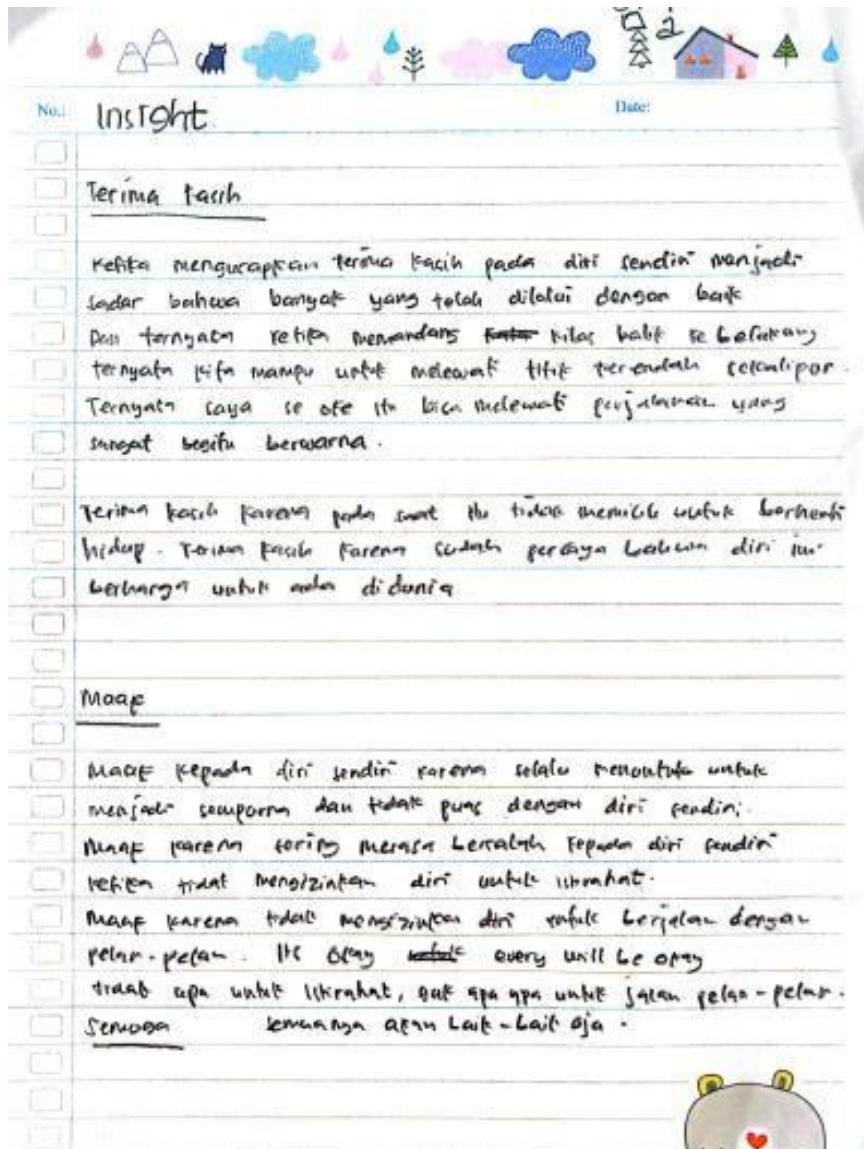 No.: Insight Date:
Terima kasih
Ketika mengucapkan terima kasih pada diri sendiri menjadi
sadar bahwa banyak yang telah dilalui dengan baik
Dan ternyata ketika memandang kilas balik ke belakang
ternyata kita mampu untuk melewati titik terendah sekalipun.
Ternyata saya se oke itu bisa melewati perjalanan yang
sangat begitu berwarna.
Terima kasih karena pada saat itu tidak memilih untuk berhenti
hidup. Terima kasih karena sudah percaya bahwa diri ini
berharga untuk ada di dunia
Maaf
Maaf kepada diri sendiri karena selalu menuntut untuk
menjadi sempurna dan tidak puas dengan diri sendiri.
Maaf karena sering merasa bersalah kepada diri sendiri
ketika tidak mengizinkan diri untuk istirahat.
Maaf karena tidak mengizinkan diri untuk berjalan dengan
pelan-pelan. Its okay every will be okay
tidak apa untuk istirahat, gak apa apa untuk jalan pelan-pelan.
Semoga semuanya akan baik-baik aja.